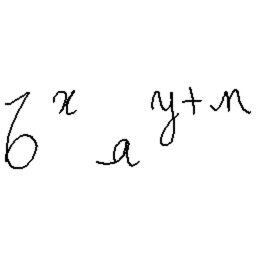 b^x a^{y+n}